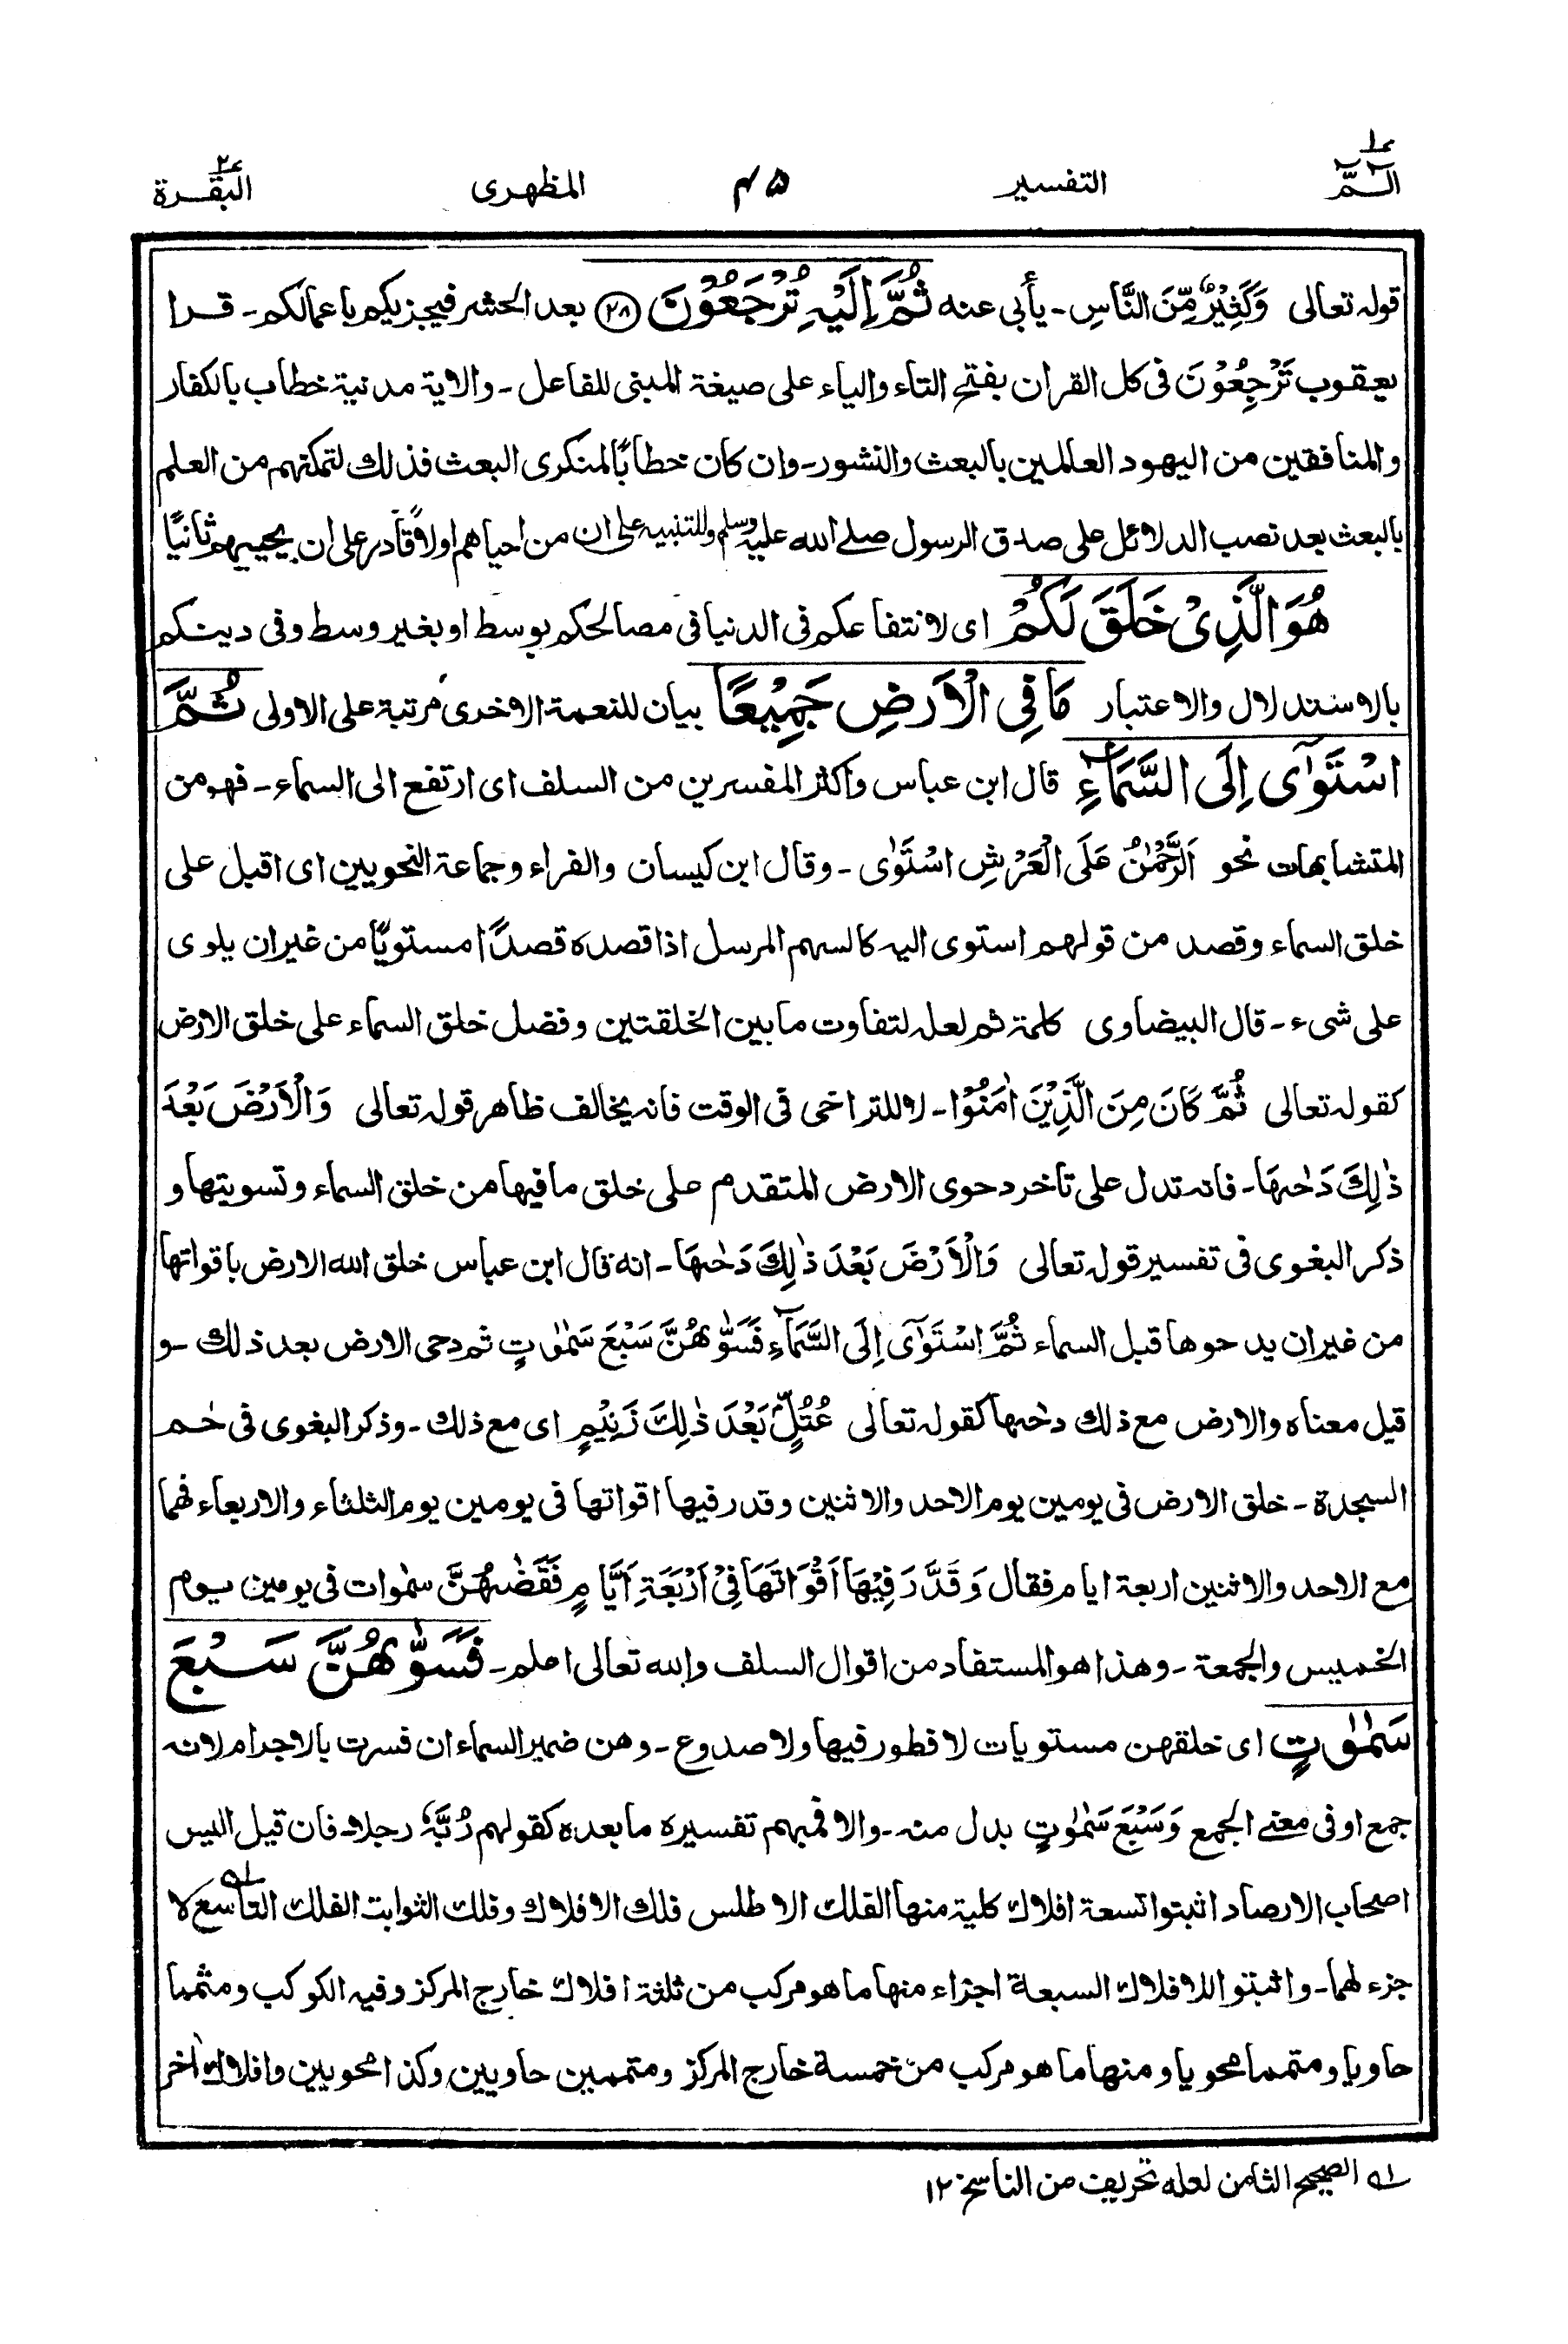 الٓمّٓ ١ التفسير ٤٥ المظهرى البقرة ٢
قوله تعالى وَكَثِيْرٌ مِّنَ النَّاسِ - يأبى عنه ثُمَّ اِلَيْهِ تُرْجَعُوْنَ (٢٨) بعد الحشر فيجزيكم باعمالكم - قرا
يعقوب تَرْجِعُوْنَ فى كل القران بفتح التاء والياء على صيغة المبنى للفاعل - والاية مدنية خطاب بالكفار
والمنافقين من اليهود العالمين بالبعث والنشور - وان كان خطابًا لمنكرى البعث فذلك لتمكنهم من العلم
بالبعث بعد نصب الدلائل على صدق الرسول صلے الله عليه وسلم وللتنبيه على ان من احياهم اولًا قادر على ان يحييهم ثانيًا
هُوَ الَّذِىْ خَلَقَ لَكُمْ اى لانتفاعكم فى الدنيا فى مصالحكم بوسط او بغير وسط وفى دينكم
بالاستدلال والاعتبار مَا فِى الْاَرْضِ جَمِيْعًا بيان للنعمة الاخرى مرتبة على الاولى ثُمَّ
اسْتَوٰٓى اِلَى السَّمَآءِ قال ابن عباس واكثر المفسرين من السلف اى ارتفع الى السماء - فهو من
المتشابهات نحو اَلرَّحْمٰنُ عَلَى الْعَرْشِ اسْتَوٰى - وقال ابن كيسان والفراء وجماعة النحويين اى اقبل على
خلق السماء وقصد من قولهم استوى اليه كالسهم المرسل اذا قصده قصدًا مستويًا من غير ان يلوى
على شىء - قال البيضاوى كلمة ثم لعله لتفاوت ما بين الخلقتين وفضل خلق السماء على خلق الارض
كقوله تعالى ثُمَّ كَانَ مِنَ الَّذِيْنَ اٰمَنُوْا - لا للتراخى فى الوقت فانه يخالف ظاهر قوله تعالى وَالْاَرْضَ بَعْدَ
ذٰلِكَ دَحٰىهَا - فانه تدل على تاخر دحوى الارض المتقدم على خلق ما فيها من خلق السماء وتسويتها و
ذكر البغوى فى تفسير قوله تعالى وَالْاَرْضَ بَعْدَ ذٰلِكَ دَحٰىهَا - انه قال ابن عباس خلق الله الارض باقواتها
من غير ان يدحوها قبل السماء ثُمَّ اسْتَوٰٓى اِلَى السَّمَآءِ فَسَوّٰىهُنَّ سَبْعَ سَمٰوٰتٍ ثم دحى الارض بعد ذلك - و
قيل معناه والارض مع ذلك دحٰىها كقوله تعالى عُتُلٍّۭ بَعْدَ ذٰلِكَ زَنِيْمٍ اى مع ذلك - وذكر البغوى فى حٰم
السجدة - خلق الارض فى يومين يوم الاحد والاثنين وقدر فيها اقواتها فى يومين يوم الثلثاء والاربعاء فهما
مع الاحد والاثنين اربعة ايام فقال وَقَدَّرَ فِيْهَا اَقْوَاتَهَا فِىْ اَرْبَعَةِ اَيَّامٍ فَقَضٰىهُنَّ سمٰوات فى يومين يوم
الخميس والجمعة - وهذا هو المستفاد من اقوال السلف والله تعالى اعلم - فَسَوّٰىهُنَّ سَبْعَ
سَمٰوٰتٍ اى خلقهن مستويات لا فطور فيها ولا صدوع - وهن ضمير السماء ان فسرت بالاجرام لانه
جمع او فى معنے الجمع وَسَبْعَ سَمٰوٰتٍ بدل منه - والا فمبهم تفسيره ما بعده كقولهم رُبَّهٗ رجلا - فان قيل اليس
اصحاب الارصاد اثبتوا تسعة افلاك كلية منها الفلك الاطلس فلك الافلاك وفلك الثوابت الفلك التاسع ١ه لا
جزء لهما - واثبتوا للافلاك السبعة اجزاء منها ما هو مركب من ثلثة افلاك خارج المركز وفيه الكوكب ومتمما
حاويا ومتمما محويا ومنها ما هو مركب من خمسة خارج المركز ومتممين حاويين وكذا محويين وافلاك اٰخر
١ه الصحيح الثامن لعله تحريف من الناسخ ١٢